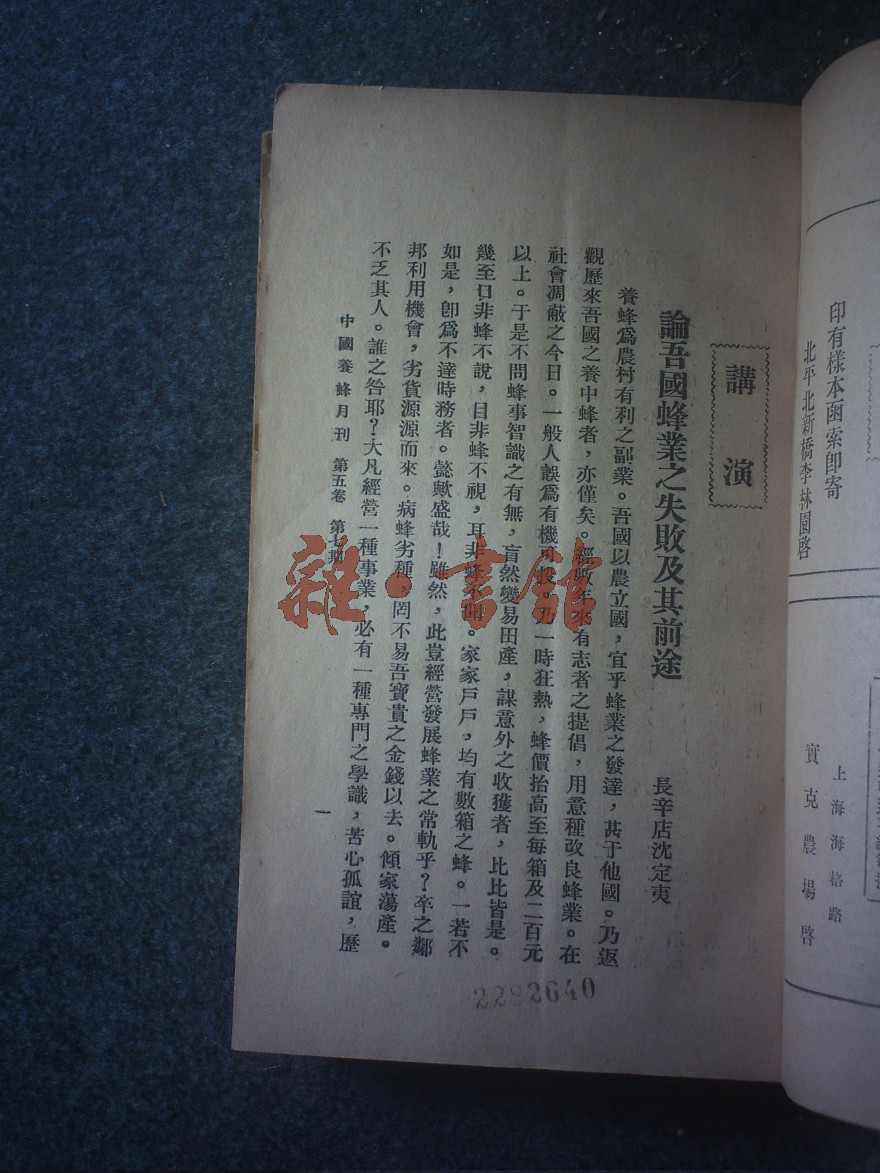 印有樣本函索即寄
北平北新橋李林園啓
上海海格路
實克農場啓
講演
論吾國蜂業之失敗及其前途
長辛店沈定夷
養蜂爲農村有利之副業。吾國以農立國，宜乎蜂業之發達，甚于他國。乃返
觀歷來吾國之養中蜂者，亦僅矣。經數年來有志者之提倡，用意種改良蜂業。在
社會凋蔽之今日。一般人誤爲有機可投，乃一時狂熱，蜂價抬高至每箱及二百元
以上。于是不問蜂事智識之有無，肓然變易田產，謀意外之收獲者，比比皆是。
幾至口非蜂不說，目非蜂不視，耳非蜂不聞。家家戶戶，均有數箱之蜂。一若不
如是，卽爲不達時務者。懿歟盛哉！雖然，此豈經營發展蜂業之常軌乎？卒之鄰
邦利用機會，劣貨源源而來。病蜂劣種，罔不易吾寶貴之金錢以去。傾家蕩產。
不乏其人。誰之咎耶？大凡經營一種事業，必有一種專門之學識，苦心孤誼，歷
中國養蜂月刊 第五卷 第七期
一
2282640
雜·書館